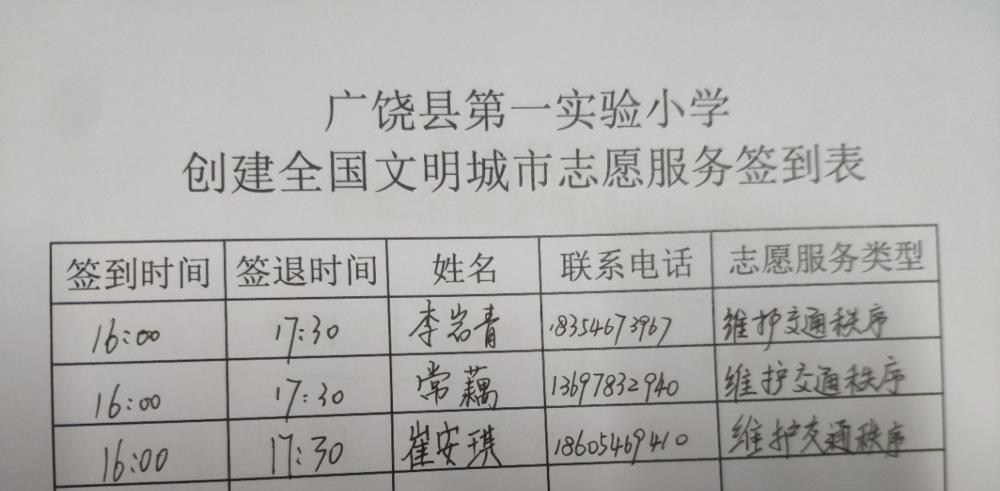 广饶县第一实验小学
创建全国文明城市志愿服务签到表
签到时间 签退时间 姓名 联系电话 志愿服务类型
16:00 17:30 李岩青 18354673967 维护交通秩序
16:00 17:30 常藕 13697832940 维护交通秩序
16:00 17:30 崔安琪 18605469410 维护交通秩序